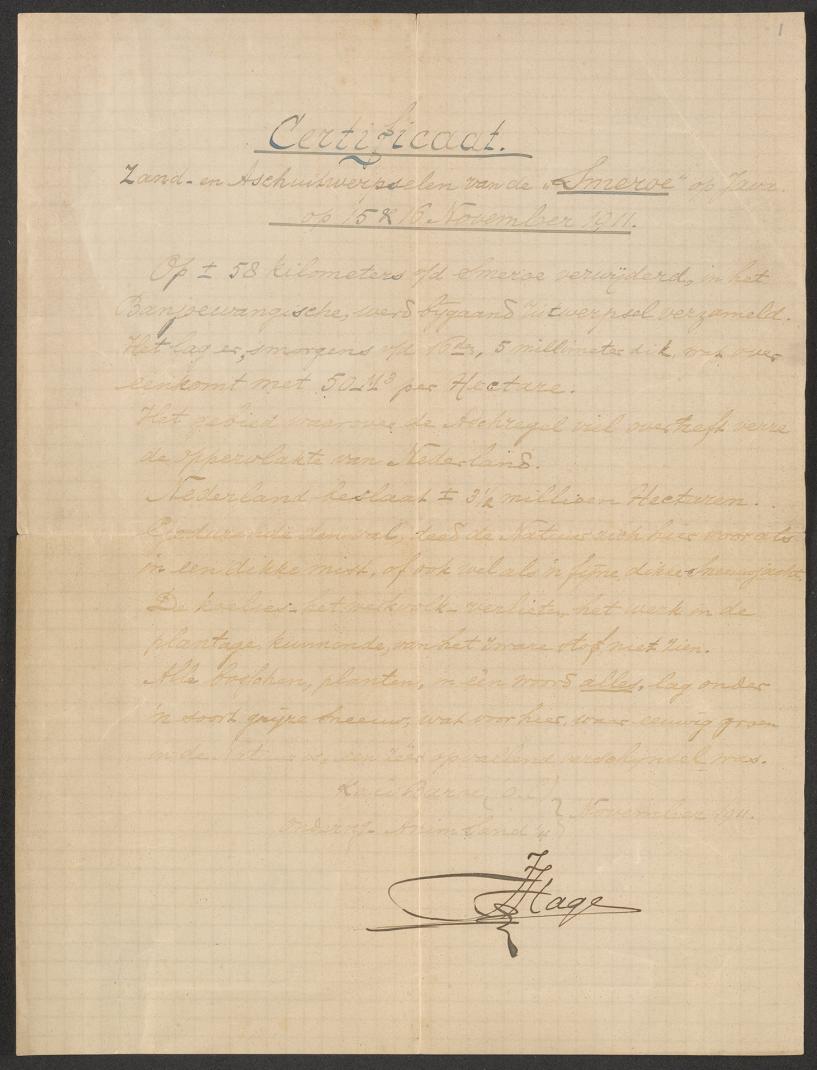 1
Certificaat.
Zand- en Aschuitwerpselen van de „Smeroe" op Java.
op 15 & 16 November 1911.
Op ± 58 kilometers v/d Smeroe verwijderd, in het
Banjoewangische, werd bijgaand uitwerpsel verzameld.
Het lag er, smorgens v/d 16den, 5 millimeter dik, wat over
eenkomt met 50 M³ per Hectare.
Het gebied waarover de Aschregel viel overtreft verre
de oppervlakte van Nederland.
Nederland beslaat ± 3½ millioen Hectaren.
Gedurende den val, deed de Natuur zich hier voor als
in een dikke mist, of ook wel als 'n fijne dikke sneeuwjacht.
De koelies - het werkvolk - verlieten het werk in de
plantage, kunnende, van het zware stof niet zien.
Alle bosschen, planten, in één woord alles, lag onder
'n soort grijze sneeuw, wat voor hier, waar eeuwig groen
in de Natuur is, een zéér opvallend verschijnsel was.
November 1911.
Hage